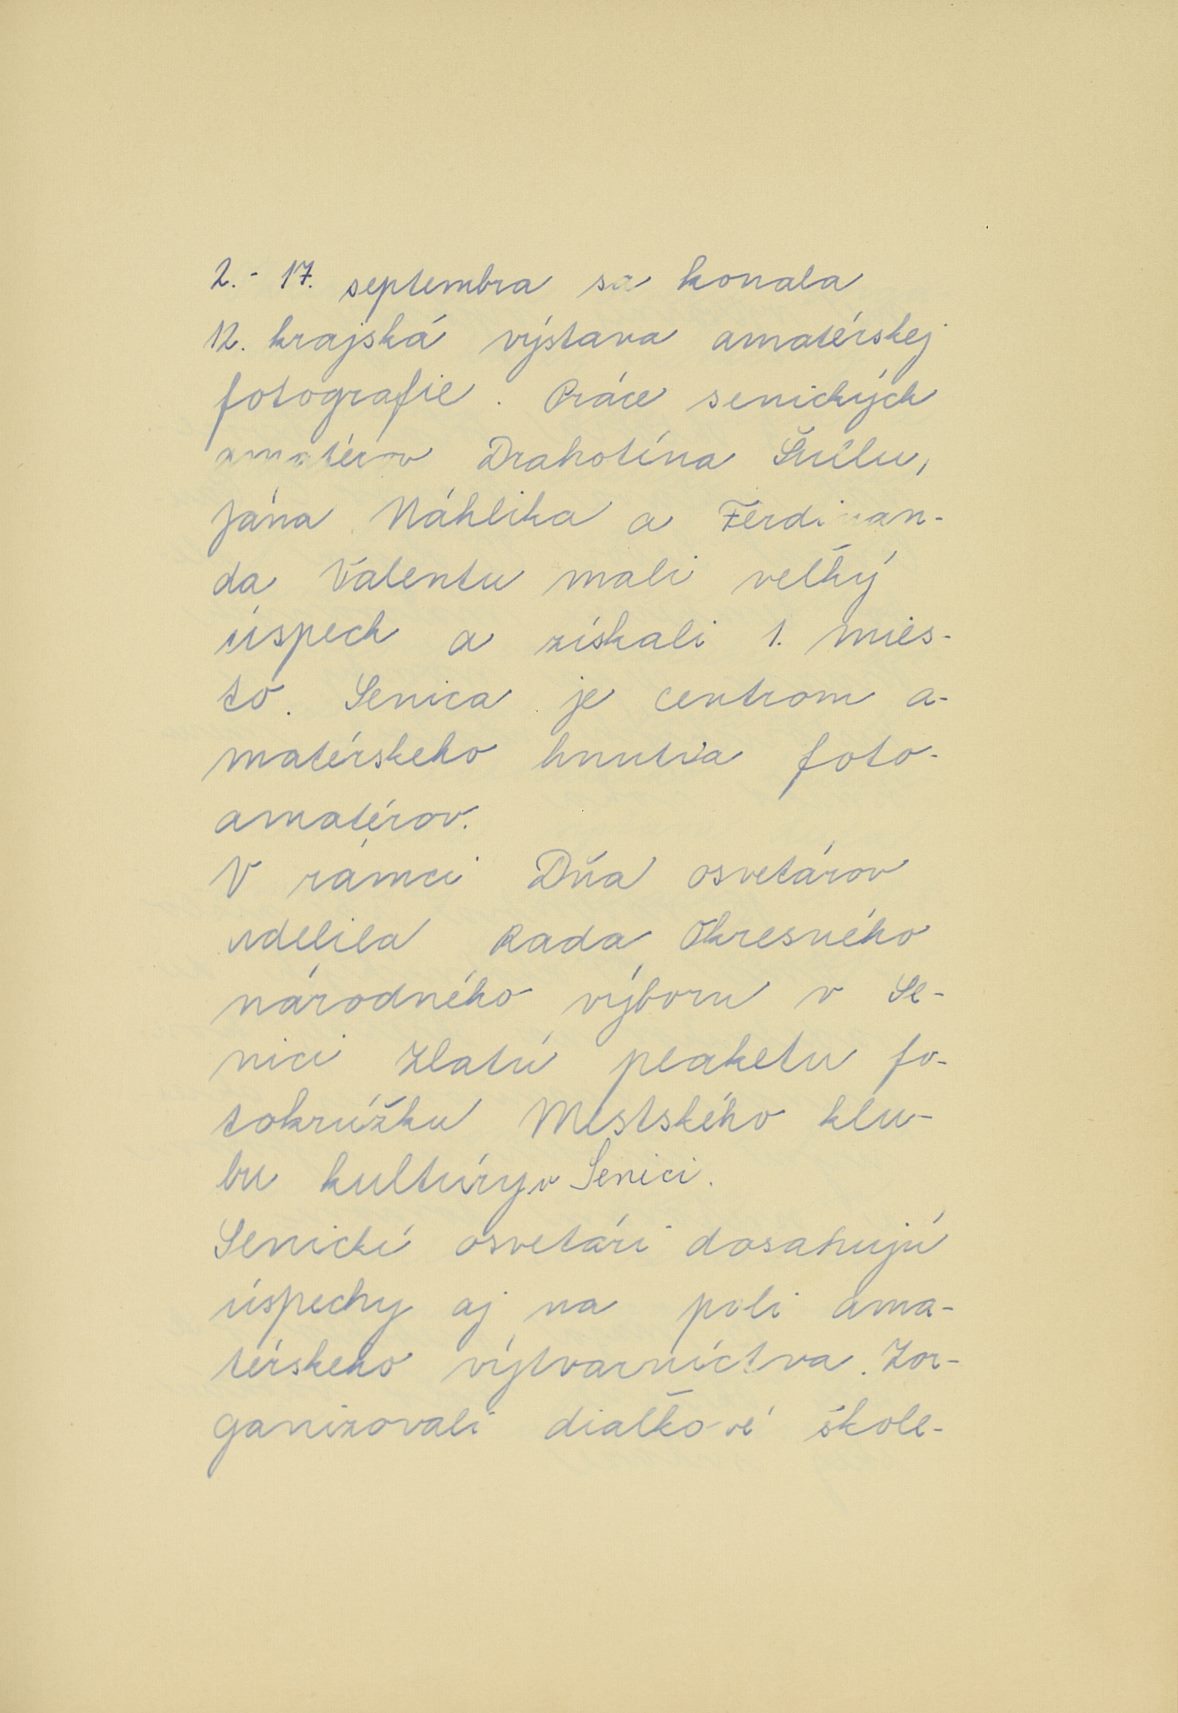 2.- 17. septembra sa konala
12. krajská výstava amatérskej
fotografie. Práce senických
amatérov Drahotína Šuílu,
Jána Náhlika a Ferdinan-
da Valentu mali veľký
úspech a získali 1. mies-
to. Senica je centrom a-
matérskeho hnutia foto-
amatérov.
V rámci Dňa osvetárov
udelila Rada Okresného
národného výboru v Se-
nici Zlatú plaketu fo-
tokrúžku Mestského klu-
bu kultúry v Senici.
Senickí osvetári dosahujú
úspechy aj na poli ama-
térskeho výtvarníctva. Zor-
ganizovali diaľkové škole-